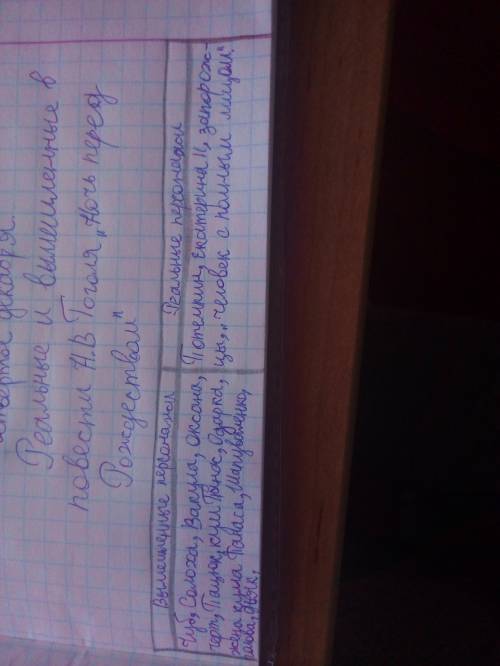 четвёртое декабря.
Реальные и вымышленные в
повести Н.В Гоголя „Ночь перед
Рождеством"
Вымышленные персонажи
Реальные персонажи
Чуб, Солоха, Вакула, Оксана,
чёрт, Пацюк, кум Панас, Одарка,
жена кума Панаса, Шапуваленко,
голова, дьяк,
Потёмкин, Екатерина II, запорож-
цы, „человек с полным лицом".